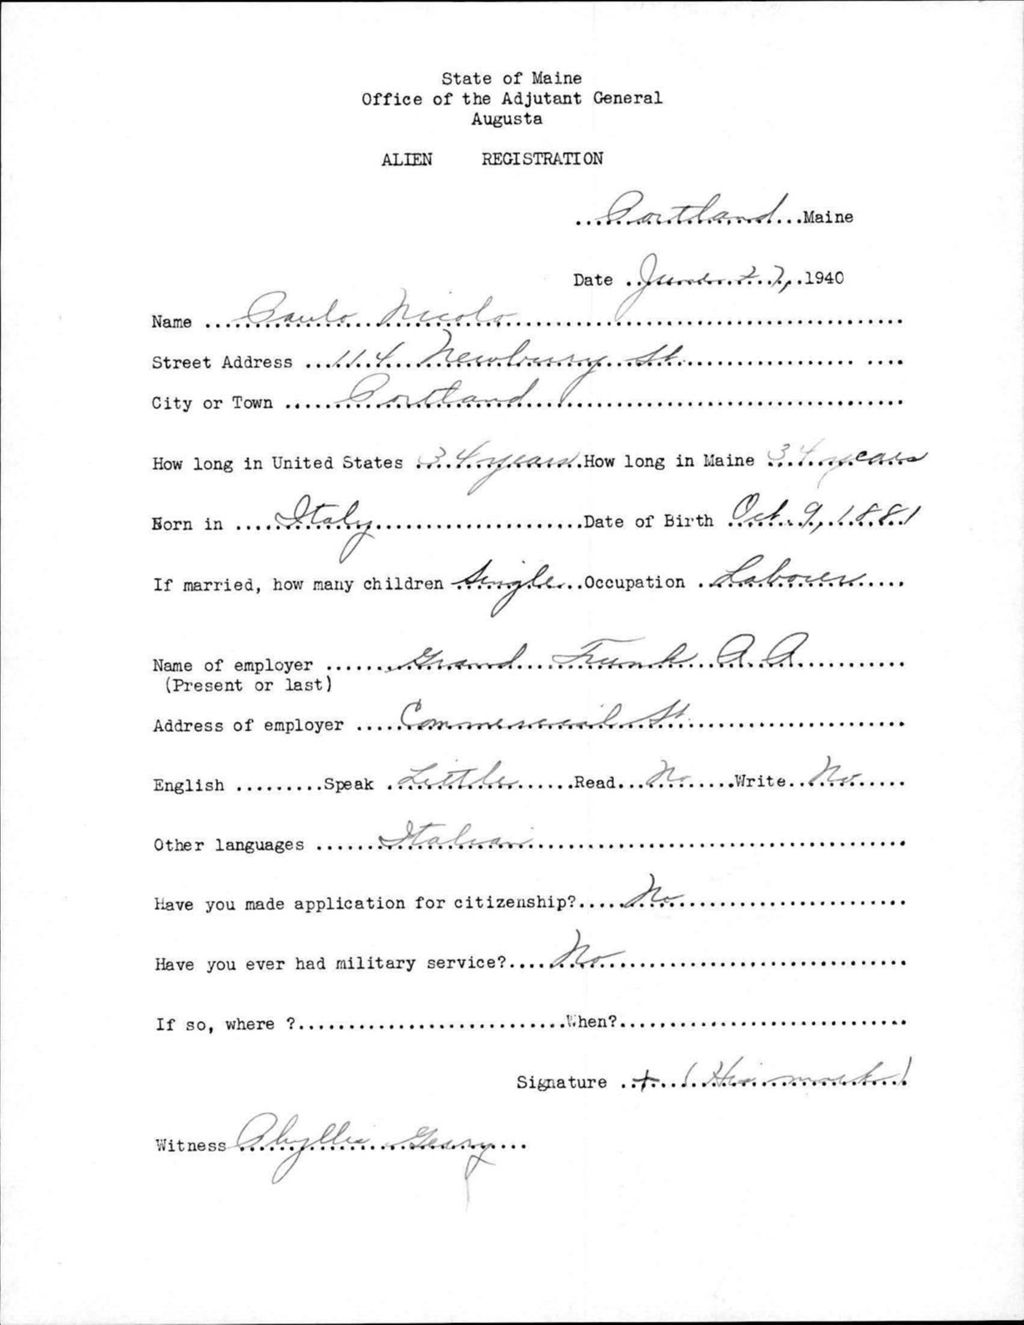 State of Maine
Office of the Adjutant General
Augusta
ALIEN REGISTRATION
Portland Maine
Date June 27, 1940
Name Paulo Nicolo
Street Address 114 Newbury St.
City or Town Portland
How long in United States 34 years How long in Maine 34 years
Born in Italy Date of Birth Oct. 9, 1881
If married, how many children Single Occupation Laborer
Name of employer Grand Trunk R.R.
(Present or last)
Address of employer Commercial St.
English Speak Little Read No Write No
Other languages Italian
Have you made application for citizenship? No
Have you ever had military service? No
If so, where ? When?
Signature + (His mark)
Witness Phyllis Geary